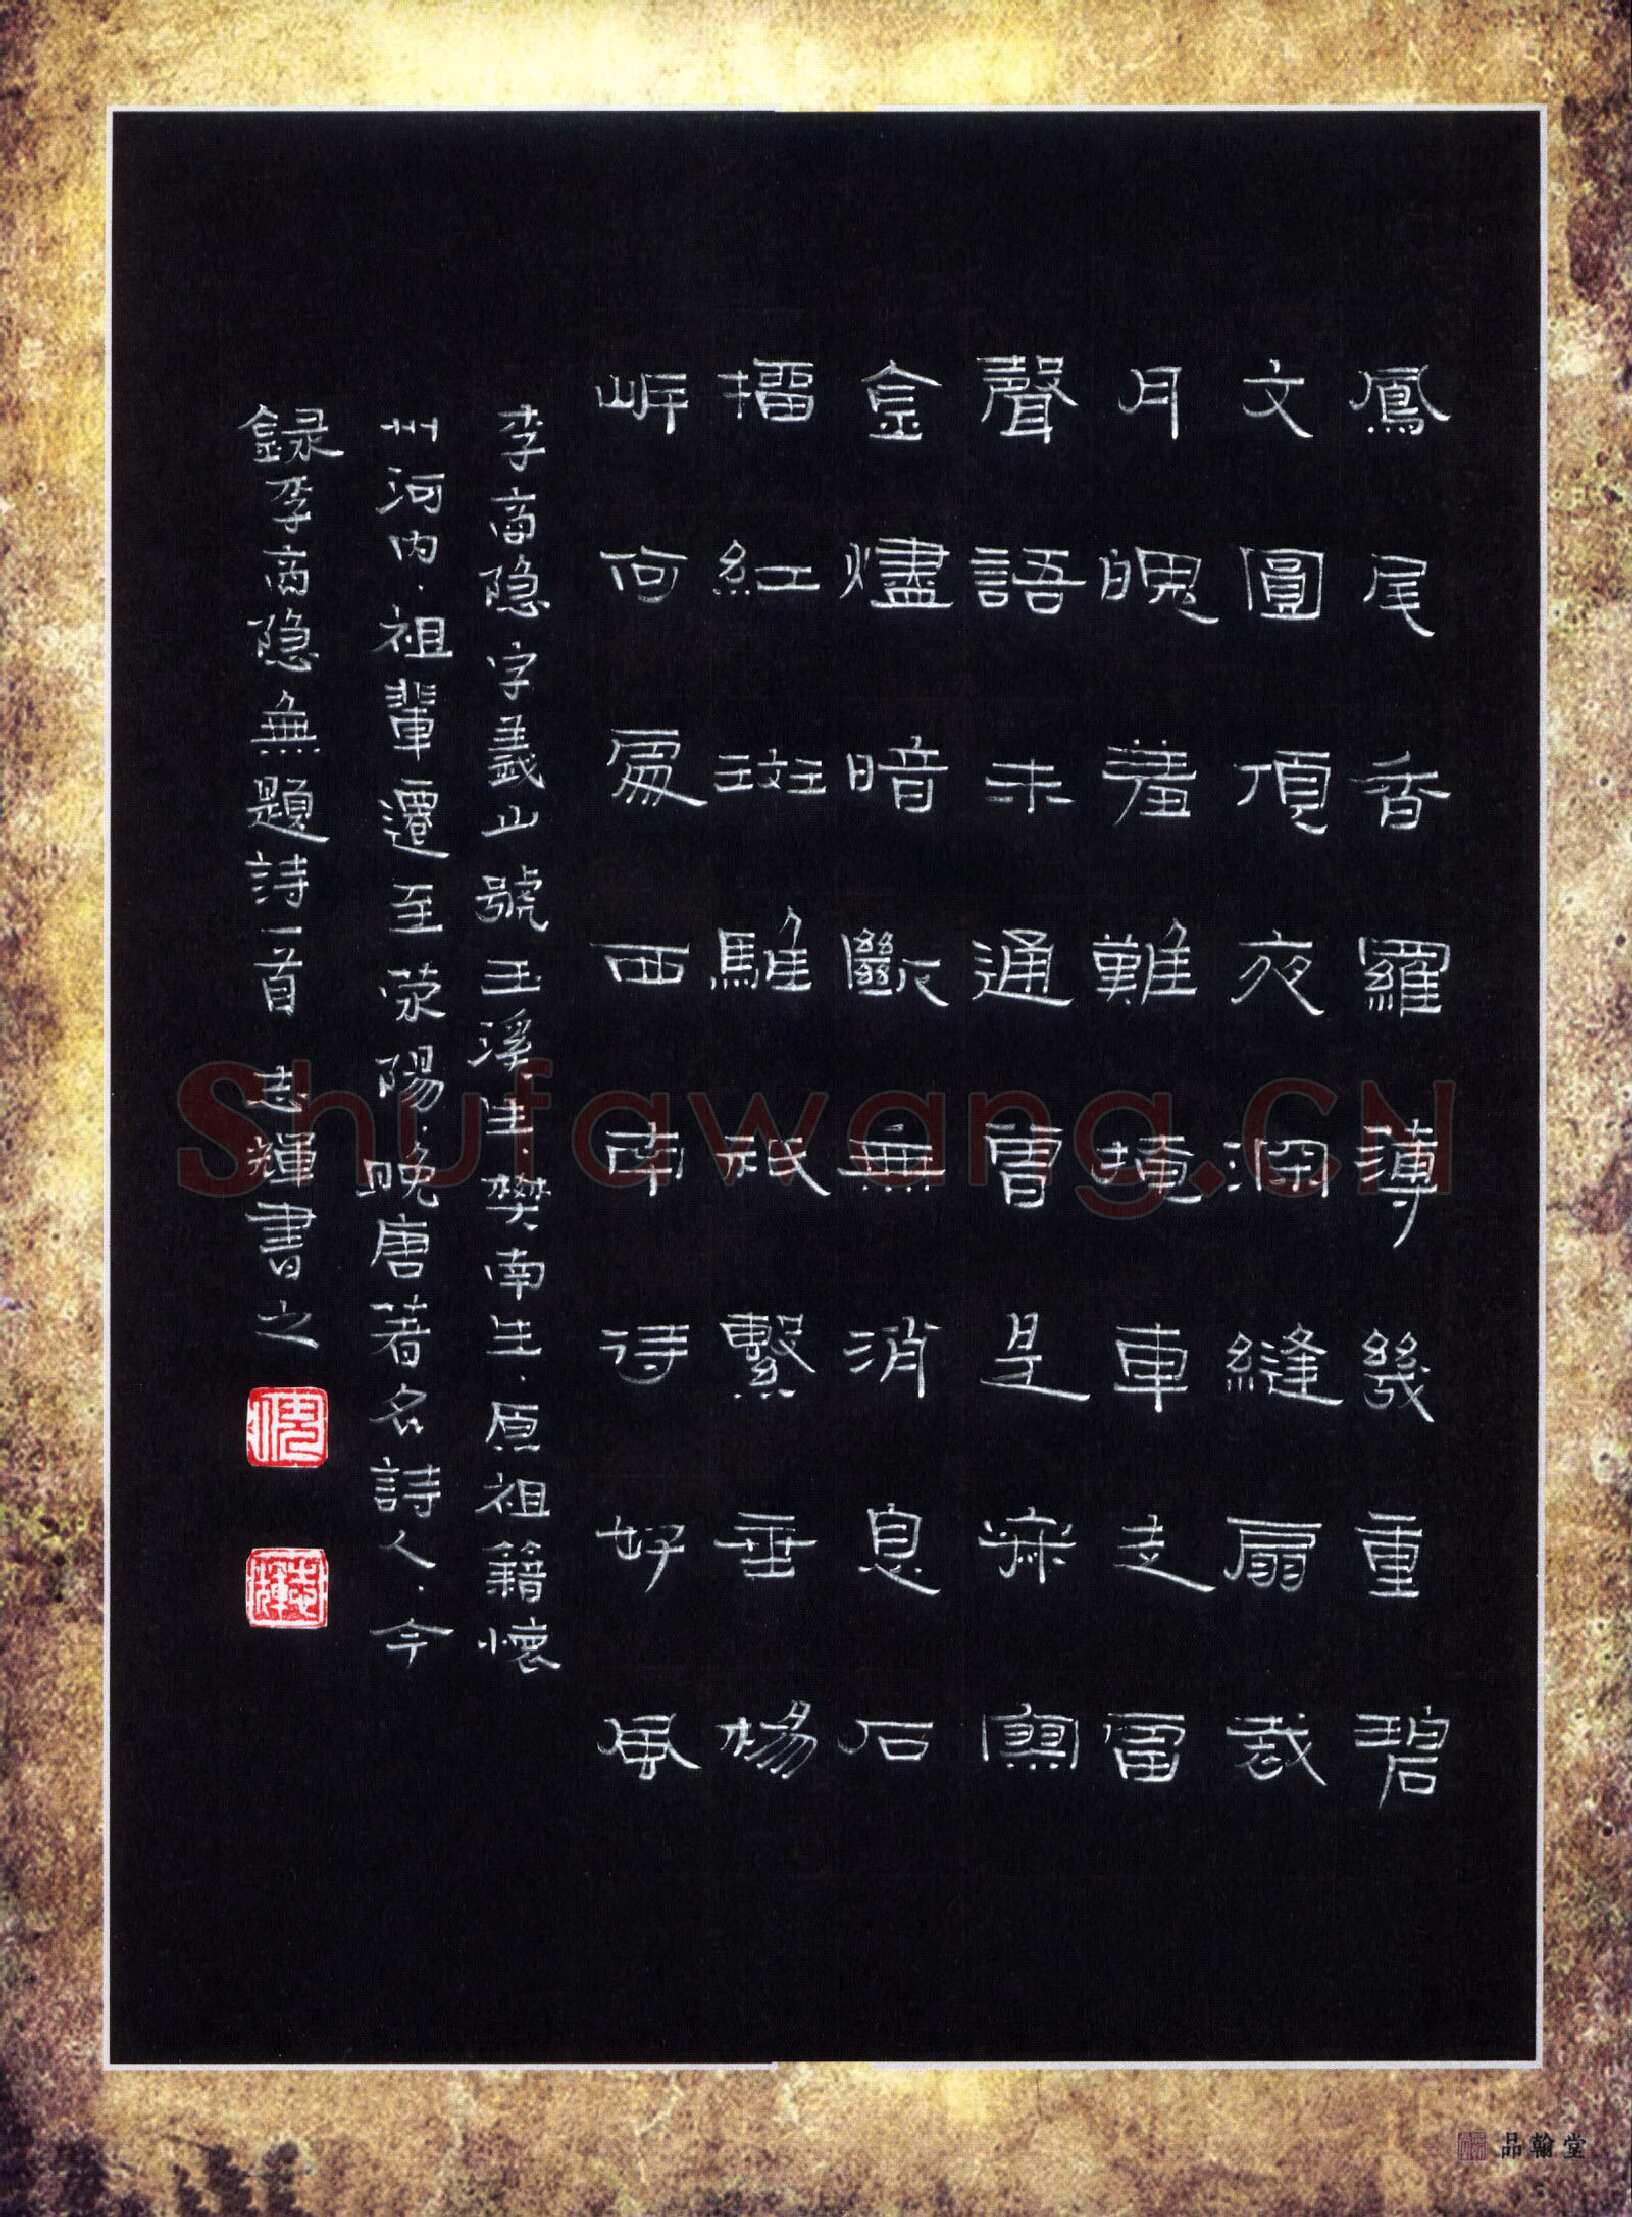 鳳尾香羅薄幾重碧
文圓頂夜深縫扇裁
月魄羞難掩車走雷
聲語未通曾是寂寥
金燼暗斷無消息石
榴紅斑騅祇繫垂楊
岸何處西南待好風
李商隐字義山號玉溪生.樊南生.原祖籍懷
州河内.祖輩遷至荥陽.晚唐著名詩人.今
録李商隐無題詩一首 志輝書之
志輝
Shufawang.CN
品翰堂